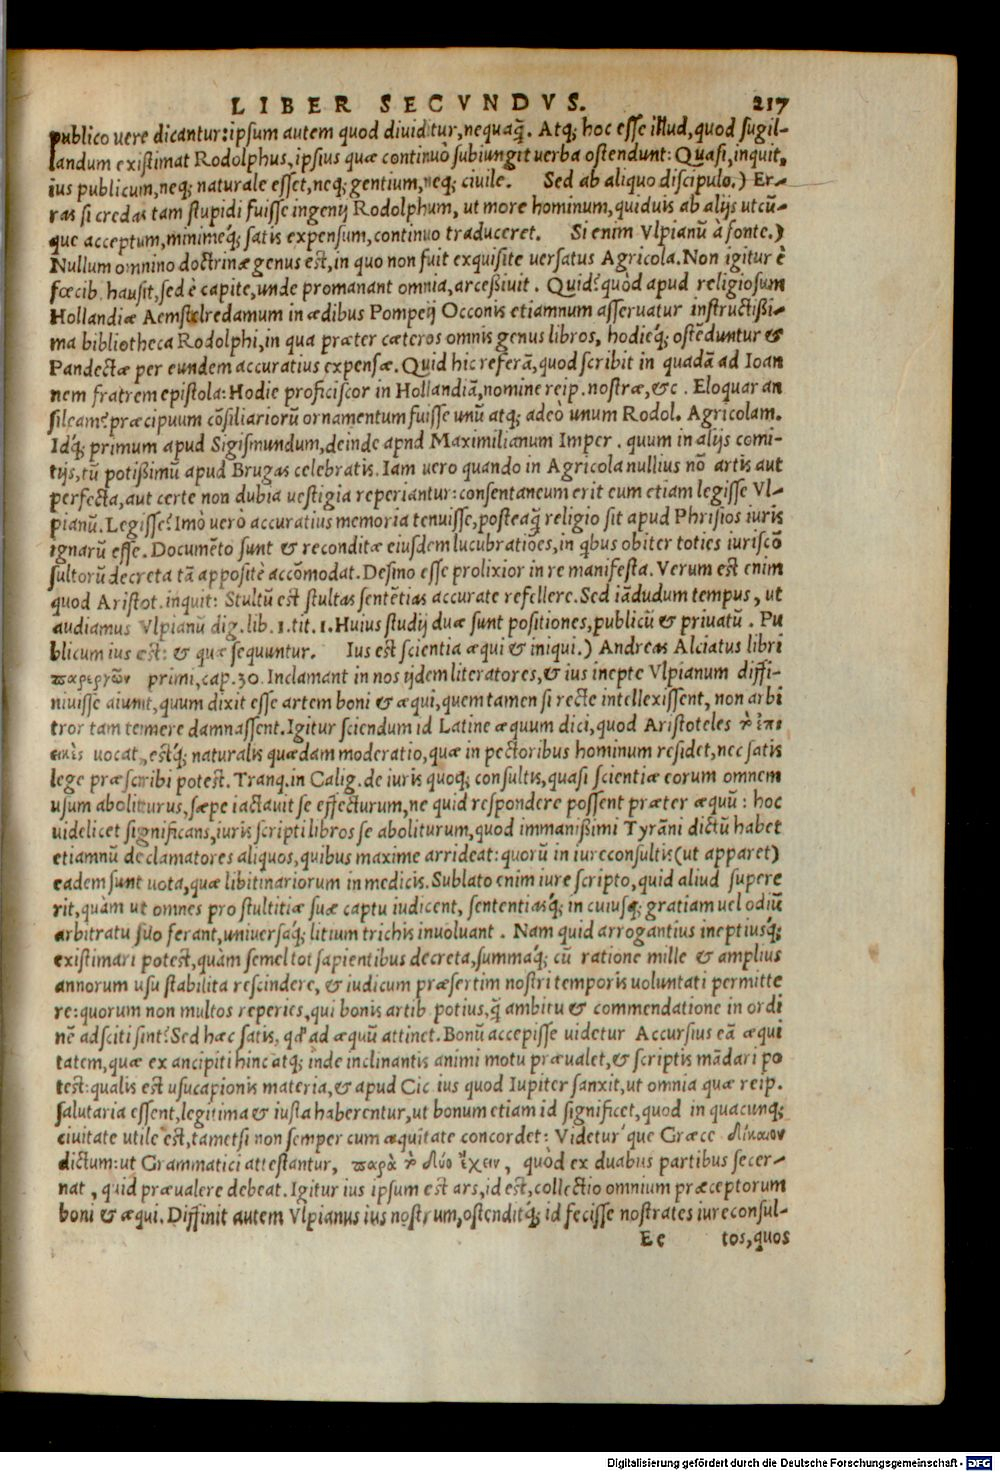 LIBER SECVNDVS. 217
publico uere dicantur: ipsum autem quod diuiditur, nequaq̃. Atq; hoc esse illud, quod sugil-
landum existimat Rodolphus, ipsius quæ continuò subiungit uerba ostendunt: Quasi, inquit,
ius publicum, neq; naturale esset, neq; gentium, neq; ciuile. Sed ab aliquo discipulo.) Er-
ras si credas tam stupidi fuisse ingenij Rodolphum, ut more hominum, quiduis ab alijs utcũ-
que acceptum, minimeq́; satis expensum, continuo traduceret. Si enim Vlpianũ à fonte.)
Nullum omnino doctrinæ genus est, in quo non fuit exquisite uersatus Agricola. Non igitur è
fœcib. hausit, sed è capite, unde promanant omnia, arceßiuit. Quid? quòd apud religiosum
Hollandiæ Aemstelredamum in ædibus Pompeij Occonis etiamnum asseruatur instructißi-
ma bibliotheca Rodolphi, in qua præter cæteros omnis genus libros, hodieq́; ostẽduntur &
Pandectæ per eundem accuratius expensæ. Quid hic referã, quod scribit in quadã ad Ioan
nem fratrem epistola: Hodie proficiscor in Hollandiã, nomine reip. nostræ, &c. Eloquar an
sileam? præcipuum cõsiliariorũ ornamentum fuisse unũ atq; adeò unum Rodol. Agricolam.
Idq́; primum apud Sigismundum, deinde apnd Maximilianum Imper. quum in alijs comi-
tijs, tũ potißimũ apud Brugas celebratis. Iam uero quando in Agricola nullius nõ artis aut
perfecta, aut certe non dubia uestigia reperiantur: consentaneum erit eum etiam legisse Vl-
pianũ. Legisse? Imò uerò accuratius memoria tenuisse, posteaq̃ religio sit apud Phrisios iuris
ignarũ esse. Documẽto sunt & reconditæ eiusdem lucubratiões, in qbus obiter toties iuriscõ
sultorũ decreta tã appositè accõmodat. Desino esse prolixior in re manifesta. Verum est enim
quod Aristot. inquit: Stultũ est stultas sentẽtias accurate refellere. Sed iãdudum tempus, ut
audiamus Vlpianũ dig. lib. 1. tit. 1. Huius studij duæ sunt positiones, publicũ & priuatũ. Pu
blicum ius est: & quæ sequuntur. Ius est scientia æqui & iniqui.) Andreas Alciatus libri
παρεργῶν primi, cap. 30. Inclamant in nos ijdem literatores, & ius inepte Vlpianum diffi-
niuisse aiunt, quum dixit esse artem boni & æqui, quem tamen si recte intellexissent, non arbi
tror tam temere damnassent. Igitur sciendum id Latine æquum dici, quod Aristoteles τὸ ἐπι
εικὲς uocat, estq́; naturalis quædam moderatio, quæ in pectoribus hominum residet, nec satis
lege præscribi potest. Tranq. in Calig. de iuris quoq; consultis, quasi scientiæ eorum omnem
usum aboliturus, sæpe iactauit se effecturum, ne quid respondere possent præter æquũ: hoc
uidelicet significans, iuris scripti libros se aboliturum, quod immanißimi Tyrãni dictũ habet
etiamnũ declamatores aliquos, quibus maxime arrideat: quorũ in iureconsultis (ut apparet)
eadem sunt uota, quæ libitinariorum in medicis. Sublato enim iure scripto, quid aliud supere
rit, quàm ut omnes pro stultitiæ suæ captu iudicent, sententiasq́; in cuiusq; gratiam uel odiũ
arbitratu suo ferant, uniuersaq́; litium trichis inuoluant. Nam quid arrogantius ineptiusq́;
existimari potest, quàm semel tot sapientibus decreta, summaq́; cũ ratione mille & amplius
annorum usu stabilita rescindere, & iudicum præsertim nostri temporis uoluntati permitte
re: quorum non multos reperies, qui bonis artib. potius, q̃ ambitu & commendatione in ordi
nẽ adsciti sint? Sed hæc satis, qđ ad æquũ attinet. Bonũ accepisse uidetur Accursius eã æqui
tatem, quæ ex ancipiti hinc atq; inde inclinantis animi motu præualet, & scriptis mãdari po
test: qualis est usucapionis materia, & apud Cic ius quod Iupiter sanxit, ut omnia quæ reip.
salutaria essent, legitima & iusta haberentur, ut bonum etiam id significet, quod in quacunq;
ciuitate utile est, tametsi non semper cum æquitate concordet: Videtur que Græce δίκαιον
dictum: ut Grammatici attestantur, παρὰ τὸ δύο ἔχειν, quòd ex duabus partibus secer-
nat, quid præualere debeat. Igitur ius ipsum est ars, id est, collectio omnium præceptorum
boni & æqui. Diffinit autem Vlpianus ius nostrum, ostenditq́; id fecisse nostrates iureconsul-
Ee tos, quos
Digitalisierung gefördert durch die Deutsche Forschungsgemeinschaft - DFG